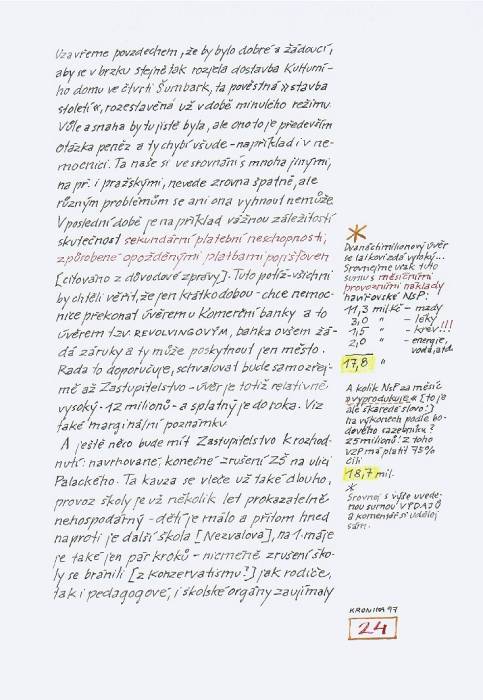 Uzavřeme povzdechem, že by bylo dobré a žádoucí,
aby se v brzku stejně tak rozjela dostavba Kulturní-
ho domu ve čtvrti Šumbark, ta pověstná »stavba
století«, rozestavěná už v době minulého režimu.
Vůle a snaha by tu jistě byla, ale ono to je především
otázka peněz a ty chybí všude - například i v ne-
mocnici. Ta naše si ve srovnání s mnoha jinými,
na př. i pražskými, nevede zrovna špatně, ale
různým problémům se ani ona vyhnout nemůže.
V poslední době je na příklad vážnou záležitostí
skutečnost sekundární platební neschopnosti,
způsobené opožděnými platbami pojišťoven
[citováno z důvodové zprávy]. Tuto potíž - všichni
by chtěli věřit, že jen krátkodobou - chce nemoc-
nice překonat úvěrem u Komerční banky a to
úvěrem tzv. REVOLVINGOVÝM, banka ovšem žá-
dá záruky a ty může poskytnout jen město.
Rada to doporučuje, schvalovat bude samozřej-
mě až Zastupitelstvo - úvěr je totiž relativně
vysoký - 12 milionů - a splatný je do roka. Viz
také marginální poznámku.
A ještě něco bude mít Zastupitelstvo k rozhod-
nutí: navrhované, konečné zrušení ZŠ na ulici
Palackého. Ta kauza se vleče už také dlouho,
provoz školy je už několik let prokazatelně
nehospodárný - dětí je málo a přitom hned
naproti je další škola [Nezvalova], na 1. máje
je také jen pár kroků - nicméně zrušení ško-
ly se bránili [z konzervatismu?] jak rodiče,
tak i pedagogové, i školské orgány zaujímaly
*
Dvanáctimilionový úvěr
se laikovi zdá vysoký...
Srovnejme však tuto
sumu s měsíčními
provozními náklady
havířovské NsP:
11,3 mil. Kč - mzdy
3,0 " - léky
1,5 " - krev!!!
2,0 " - energie,
voda, atd.
17,8 "
A kolik NsP za měsíc
»vyprodukuje« [to je
ale škaredé slovo!]
na výkonech podle bo-
dového sazebníku?
25 milionů! Z toho
VZP má platit 75%
čili
18,7 mil.
*
Srovnej s výše uvede-
nou sumou VÝDAJŮ
a komentář si udělej
sám.
KRONIKA 97
24